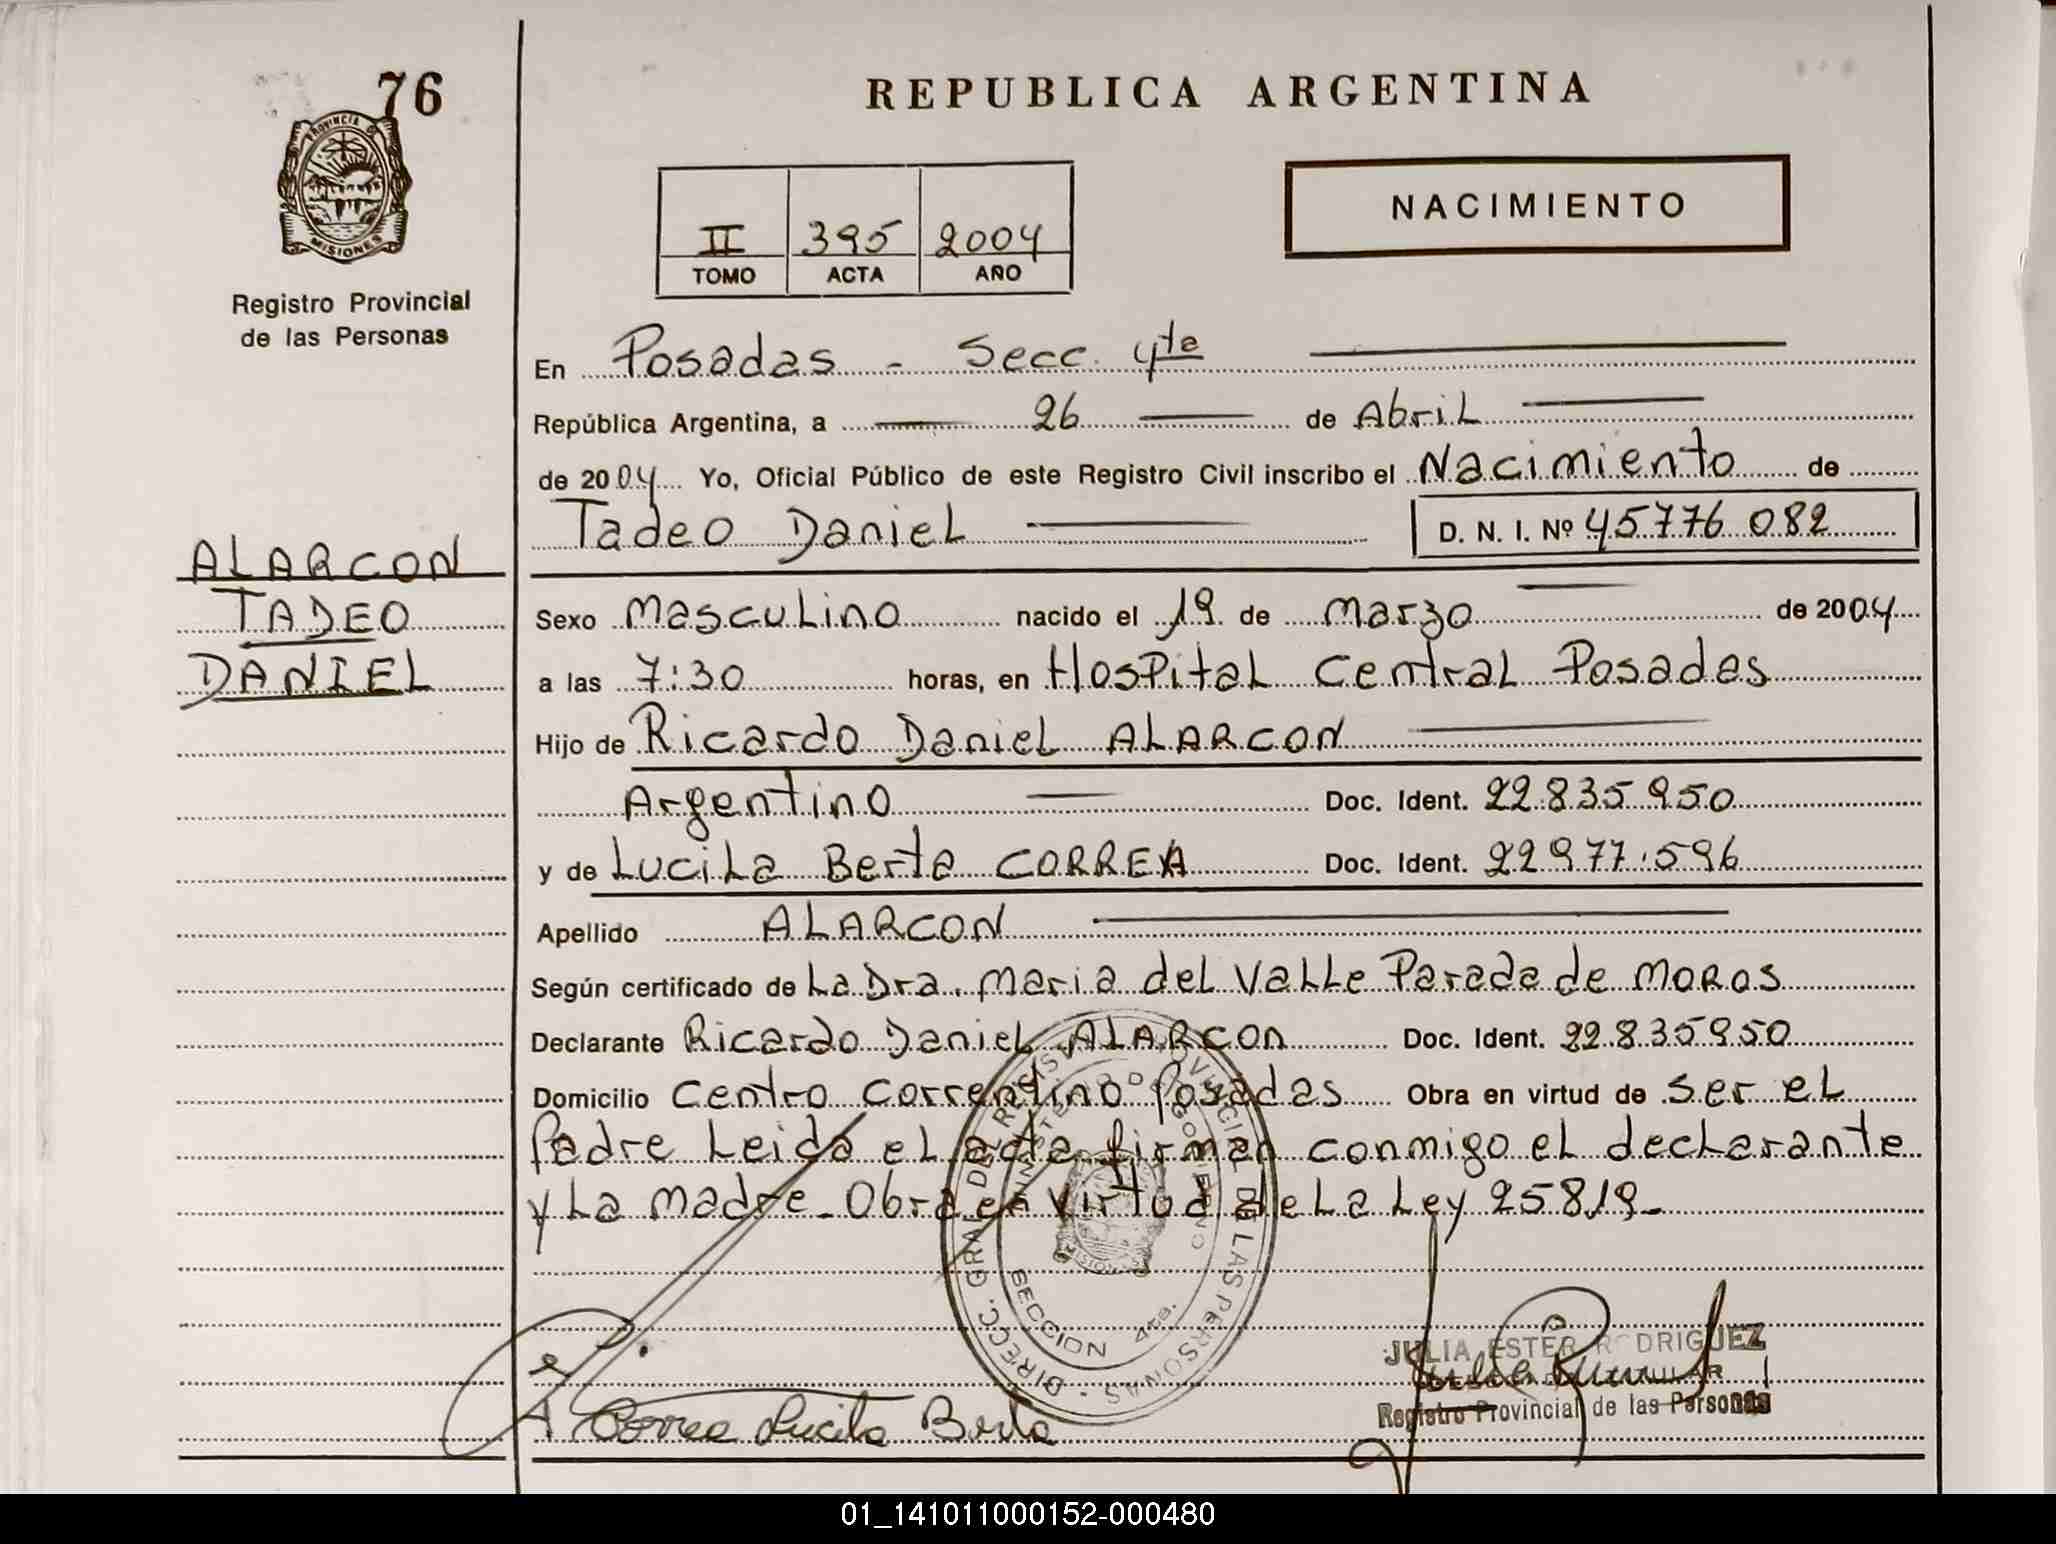 76
PROVINCIA DE
MISIONES
Registro Provincial
de las Personas
ALARCON
TADEO
DANIEL
REPUBLICA ARGENTINA
II 395 2004
TOMO ACTA AÑO
NACIMIENTO
En Posadas - Secc. 4ta
República Argentina, a 26 de Abril
de 2004 Yo, Oficial Público de este Registro Civil inscribo el Nacimiento de
Tadeo Daniel D. N. I. Nº 45776 082
Sexo Masculino nacido el 19 de marzo de 2004
a las 7:30 horas, en Hospital Central Posadas
Hijo de Ricardo Daniel ALARCON
Argentino Doc. Ident. 22.835.950
y de Lucila Berta CORREA Doc. Ident. 22977.596
Apellido ALARCON
Según certificado de La Dra. Maria del Valle Parada de MOROS
Declarante Ricardo Daniel ALARCON Doc. Ident. 22.835950
Domicilio Centro Correntino Posadas Obra en virtud de ser el
Padre Leida el acta firman conmigo el declarante
y La madre - Obra en virtud de La Ley 25819-
DIRECC. GRAL DEL REGISTRO PROVINCIAL DE LAS PERSONAS
MINISTERIO DE GOBIERNO
SECCION 4ta.
JULIA ESTER RODRIGUEZ
Registro Provincial de las Personas
Correa Lucila Berta
01_141011000152-000480